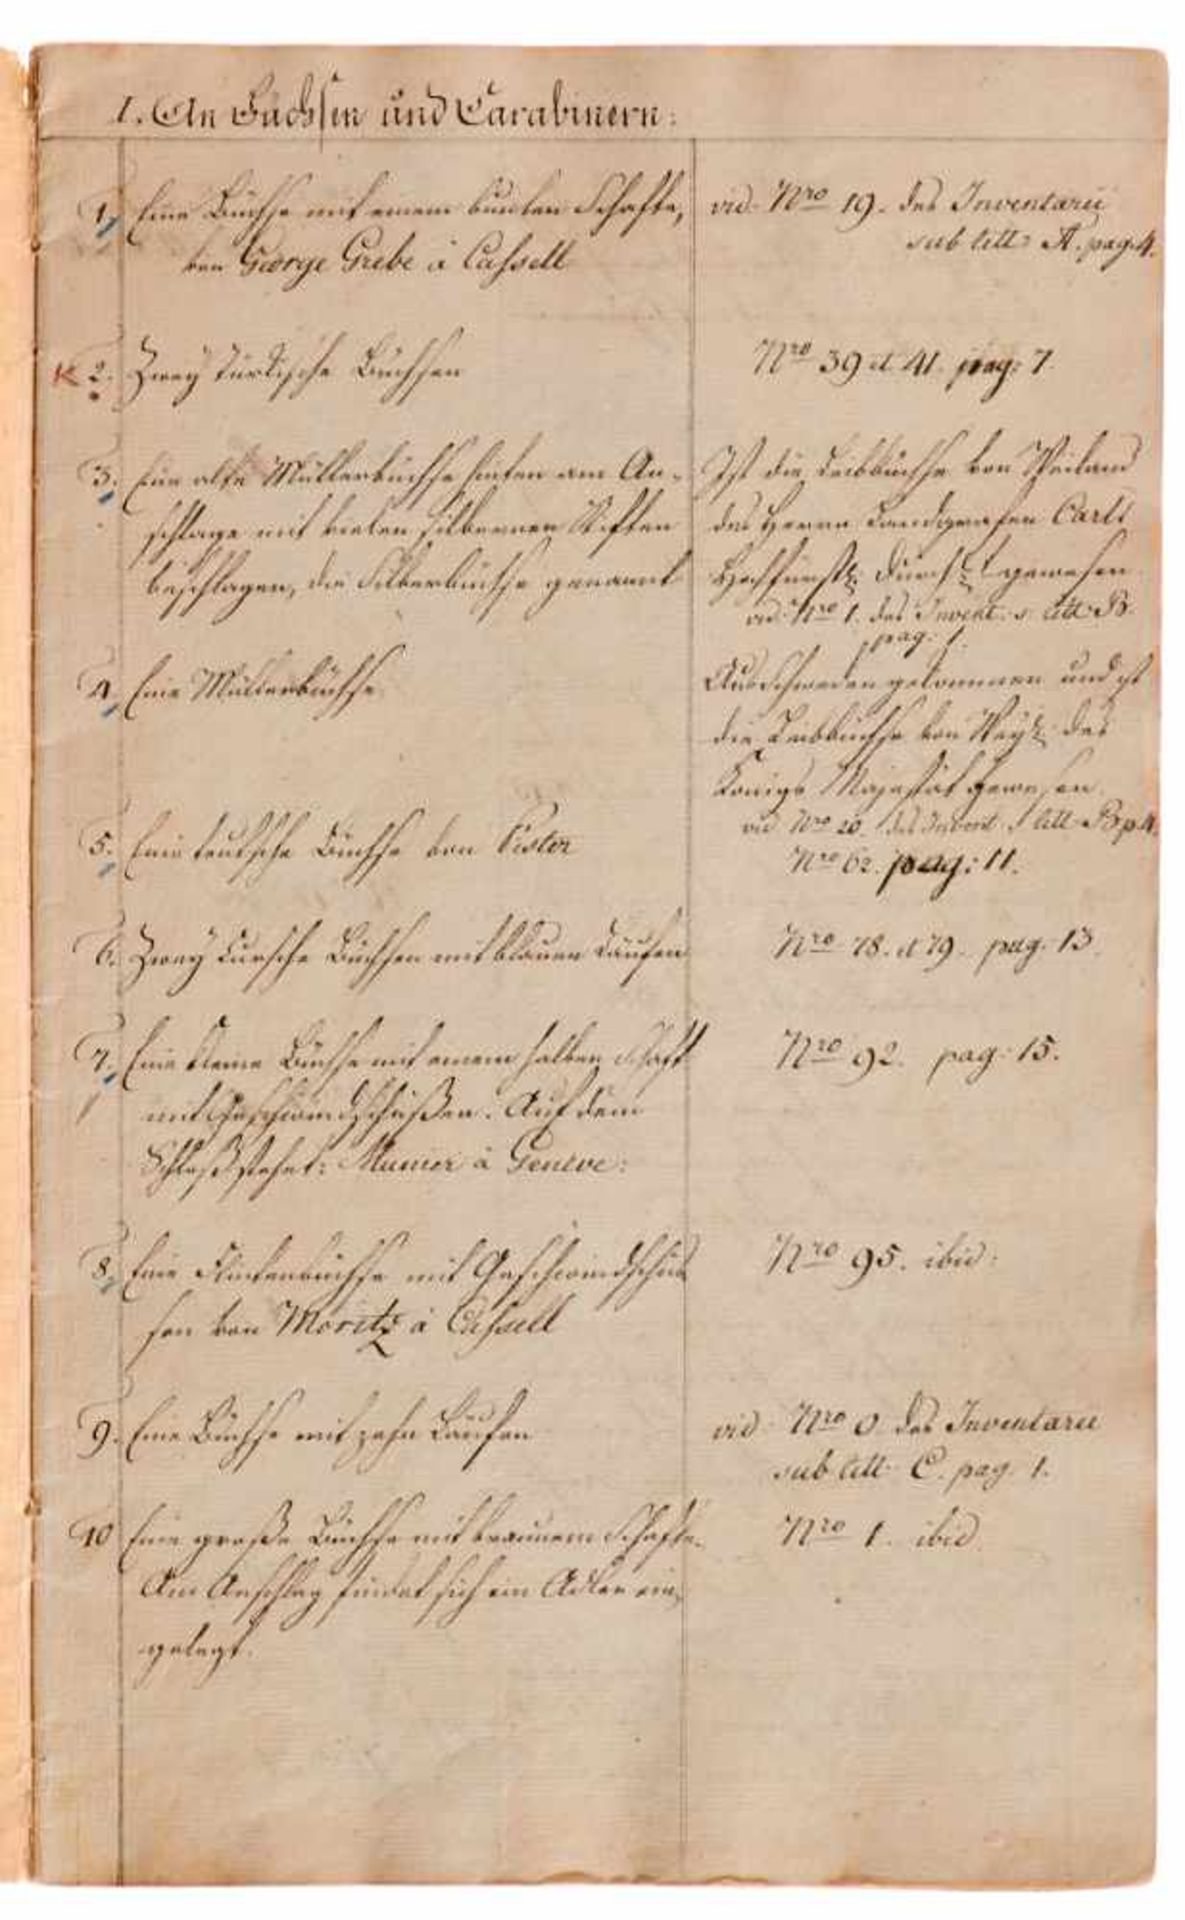 I. An Büchsen und Carabinern:
1. Eine Büchse mit einem bunten Schafte,
von George Grebe à Cassell
vid. Nro 19. des Inventarii
sub litt: A. pag. 4.
2. Zwey Türkische Büchsen
Nro 39 et 41. pag: 7.
3. Eine alte Müllerbüchse hinten am An-
schlage mit vielen silbernen Stiften
beschlagen, die Silberbüchse genannt
Ist die Leibbüchse von Weiland
des Herrn Landgrafen Carls
Hochfürstl. Durchl. gewesen
vid. Nro 1. des Invent. s. litt. B.
pag. 1.
4. Eine Müllerbüchse
Aus Schweden gekommen und ist
die Leibbüchse von Weyl. des
Königs Majestät gewesen.
vid Nro 20. des Invent. s. litt. B. p. 4.
5. Eine teutsche Büchse von Pistor
Nro 62. pag: 11.
6. Zwey Kursche Büchsen mit blauen Läufen
Nro 78. et 79. pag. 13.
7. Eine kleine Büchse mit einem halben Schaft
mit Geschwindschüßen. Auf dem
Schloß stehet: à Geneve:
Nro 92. pag: 15.
8. Eine Flintenbüchse mit Geschwindschüs
sen von Moritz à Cassell
Nro 95. ibid:
9. Eine Büchse mit zehn Läufen
vid. Nro 0 des Inventarii
sub litt. C. pag. 1.
10 Eine große Büchse mit braunem Schafte.
Am Anschlag findet sich ein Adler ein,
gelegt.
Nro 1. ibid.